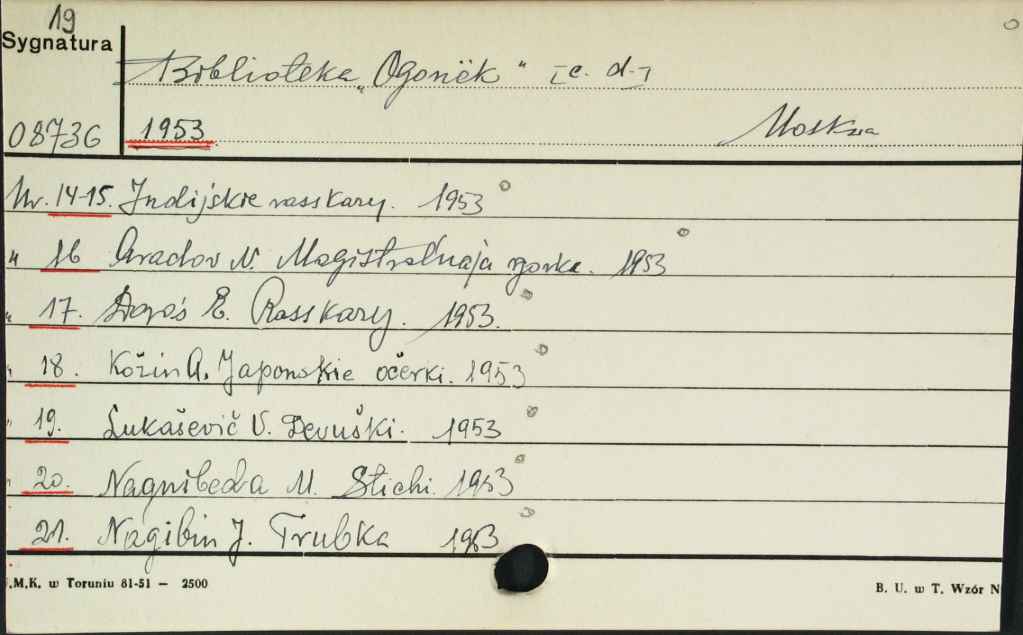 19
Sygnatura
Biblioteka „Ogonëk" [c. d.]
08736 1953 Moskva
Nr. 14-15. Indijskie rasskazy. 1953
" 16 N. Magistral'naja 1953
" 17. Doroš E. Rasskazy. 1953.
" 18. Kožin A. Japonskie očerki. 1953
" 19. Lukaševič V. Devuški. 1953
" 20. Nagnibeda M. Stichi. 1953
" 21. Nagibin J. Trubka 1953
.M.K. w Toruniu 81-51 — 2500
B. U. w T. Wzór N